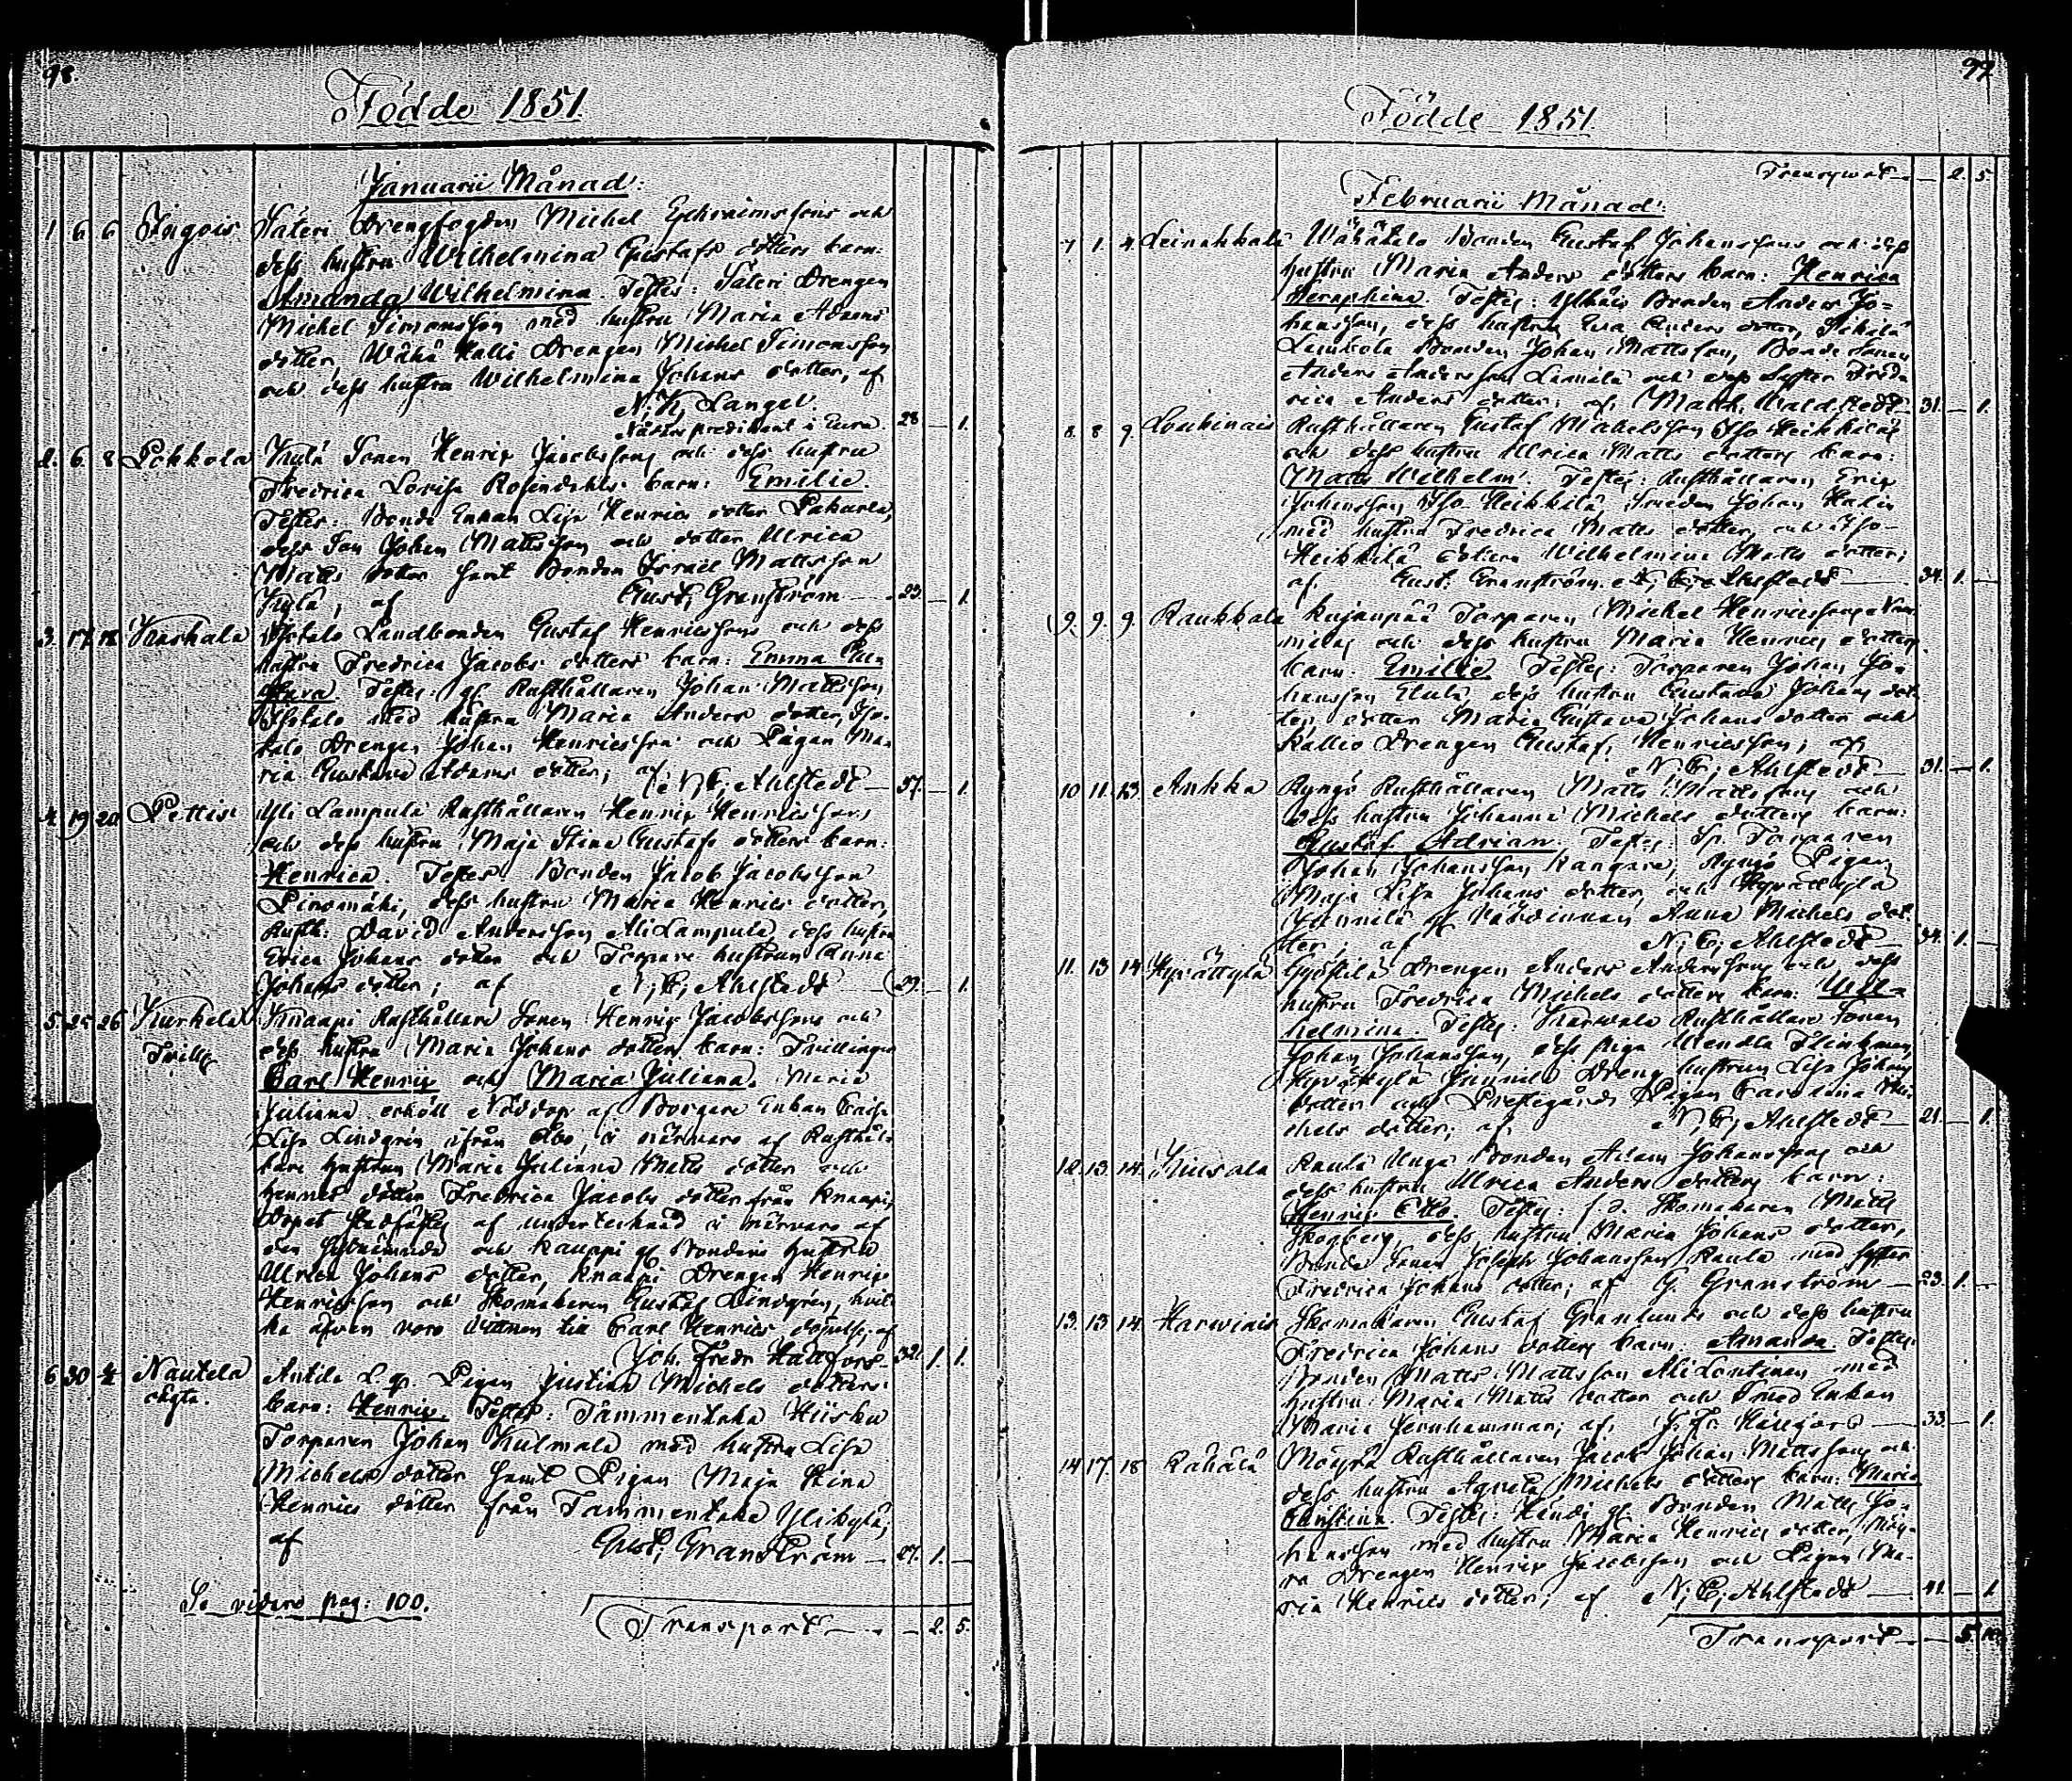 98.
Födde 1851.
Januarii Månad:
1 6 6 Ingois Säteri Drengfogden Michel Ephraimssons och
dess hustru Wilhelmina Gustafs dotters barn:
Amanda Wilhelmina. Testes: Säteri Drengen
Michel Simonsson med hustru Maria Adams
dotter, Wähä Kalli Drengen Michel Simonsson
och dess hustru Wilhelmina Johans dotter, af
N. K. Langel.
predikant i Eura. 28 — 1.
2. 6. 8 Pohkola Kylä Sonen Henrix Jacobssons och dess hustru
Fredrica Lovisa Rosendahls barn: Emilie.
Testes: Bonde Enkan Lisa Henrics dotter
dess Son Johan Mattsson och dotter Ulrica
Matts dotter samt Bonden Israel Mattsson
Kylä, af Gust. Granström — 23. — 1.
3. 17 18 Karhula Isotalo Landbonden Gustaf Henricssons och dess
hustru Fredrica Jacobs dotters barn: Emma Gu
stava. Testes: gl. Rusthållaren Johan Mattsson
Isotalo med hustru Maria Anders dotter, Iso-
talo Drengen Johan Henricsson och Pigan Ma-
ria Gustava Adams dotter; af N. E. Ahlstedt — 37. — 1.
4. 19 20 Pettis Yli Lampula Rusthållaren Henrix Henricssons
och dess hustru Maja Stina Gustafs dotters barn:
Henrica. Testes Bonden Jacob Jacobsson
Pinomäki, dess hustru Maria Henrics dotter,
Rusth: David Andersson Ali Lampula dess hustru
Erica Johans dotter och Torpare hustrun Anna
Johans dotter; af N. E. Ahlstedt — 29. — 1.
5. 25 26 Kurkela Knaapi Rusthållare Sonen Henrix Jacobssons och
Tvilly dess hustru Maria Johans dotters barn: Tvillingar
Carl Henrix och Maria Juliana. Maria
Juliana erhöll Nöddop af Borgare Enkan Caisa
Lisa Lindgrén ifrån Åbo, i närvaro af Rusthål-
lare hustrun Maria Juliana Matts dotter och
hennes dotter Fredrica Jacobs dotter från Knaapi,
Dopet stadfästes af undertecknad i närvaro af
den sistnämnde och Kauppi gl. Bondens hustru
Ulrica Johans dotter, Knaapi Drengen Henrix
Henricsson och Skomakaren Gustaf Lindgrén, hvil-
ka äfven voro vittnen till Carl Henrics döpelse, af
Joh. Fredr. Hällfors. 32. 1. 1.
6 30 Nautela Antila L. q. Pigan Justina Michels dotters
oägta. barn: Henrix. Testes: Tammentaka Hiisku
Torparen Johan Kulmala med hustru Lisa
Michels dotter samt Pigan Maja Stina
Henrics dotter från Tammentaka Ylikylä;
af Gust. Granström — 27. 1. —
Se vidare pag: 100.
Transport — . — 2. 5.
99.
Födde 1851
Transport — . — 2. 5.
Februarii Månad.
7 1. 4. Leinakkala Wähätalo Bonden Gustaf Johanssons och dess
hustru Maria Anders dotters barn: Henrica
Seraphina. Testes: Bonden Anders Jo-
hansson, dess hustru Eva Anders dotter,
Bonden Johan Mattsson, Bonde Sonen
Anders Andersson och dess Syster Fred-
rica Anders dotter; af Matth. Waldstedt 31. — 1.
8. 8 9. Loukinais Rusthållaren Gustaf Michelsson Iso Heikkiläs
och dess hustru Ulrica Matts dotters barn:
Matts Wilhelm. Testes: Rusthållaren Eric
Johansson Iso-Heikkilä, Smeden Johan Halin
med hustru Fredrica Matts dotter, och Iso-
Heikkilä dottren Wilhelmina Matts dotter;
af Gust. Granström. N. E. Ahlstedt — 34. 1. —
9. 9. 9. Raukkala Kujanpää Torparen Michel Henricssons
och dess hustru Maria Henrics dotters
barn: Emilie. Testes: Torparen Johan Jo-
hansson dess hustru Gustava Johans dot-
ter, dotter Maria Gustava Johans dotter och
Kallio Drengen Gustaf Henricsson; af
N. E. Ahlstedt — 31. — 1.
10 11. 13. Ankka Ryngö Rusthållaren Matts Mattssons och
dess hustru Johanna Michels dotters barn:
Gustaf Adrian. Testes: Torparen
Johan Johansson Kangare, Ryngö Pigan
Maja Lisa Johans dotter, och Hypöistylä
Junnila gl Värdinnan Anna Michels dot-
ter; af N. E. Ahlstedt — 34. 1. —
11. 13 14 Drengen Anders Anderssons och dess
hustru Fredrica Michels dotters barn: Wil-
helmina. Testes: Karwala Rusthållare Sonen
Johan Johansson, dess Piga Wendla Flinkman,
Junnila Dreng hustrun Lisa Johans
dotter och Prestegårds Pigan Carolina Mi-
chels dotter; af N. E. Ahlstedt — 21. — 1.
12. 13. 14. Kiusala Raula Unga Bonden Adam Johanssons och
dess hustru Ulrica Anders dotters barn:
Henrix Otto. Testes: f.d. Skomakaren Matts
Skogberg, dess hustru Maria Johans dotter,
Bonde Sonen Joseph Johansson Raula med syster
Fredrica Johans dotter; af G. Granström — 23. 1. —
13. 13 14. Harwiais Skomakaren Gustaf Granlunds och dess hustru
Fredrica Johans dotters barn: Amanda. Testes:
Bonden Matts Mattsson Ali Lontinen med
hustru Maria Matts dotter och Smed Enkan
Maria Jernhammar; af J. Fr. Hällfors — 33. — 1.
14 17. 18 Rähälä Möyrä Rusthållaren Jacob Johan Mattssons och
dess hustru Agneta Michels dotters barn: Maria
Christina. Testes: Händi gl. Bonden Matts Jo-
hansson med hustru Maria Henrics dotter, Möy-
rä Drengen Henrix Jacobsson och Pigan Ma-
ria Henrics dotter; af N. E. Ahlstedt — 41. — 1
Transport — . — 5 10.